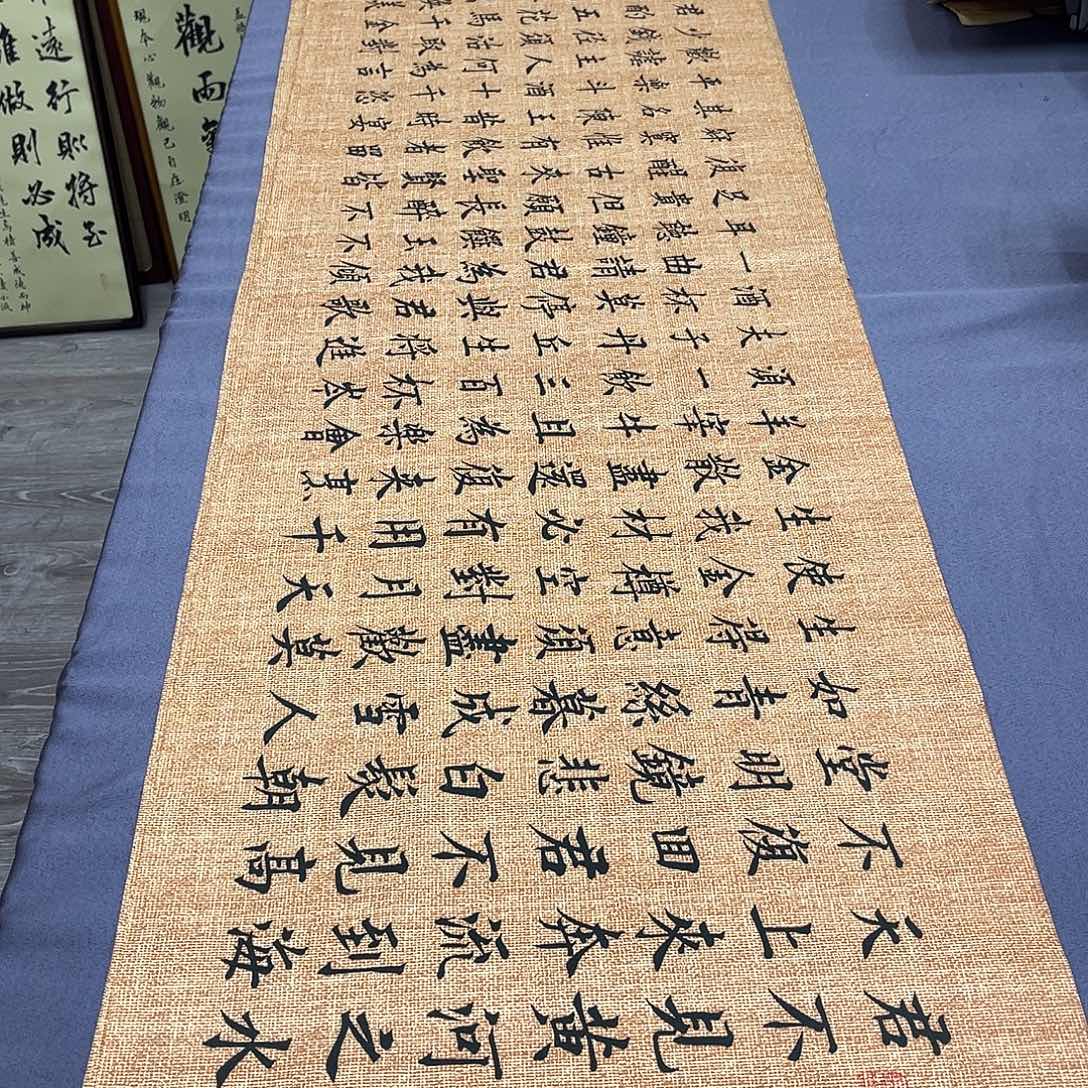 君不見黃河之水
天上來奔流到海
不復回君不見高
堂明鏡悲白髮朝
如青絲暮成雪人
生得意須盡歡莫
使金樽空對月天
生我材必有用千
金散盡還復來烹
羊宰牛且為樂會
須一飲三百杯岑
夫子丹丘生將進
酒杯莫停與君歌
一曲請君為我傾
耳聽鐘鼓饌玉不
足貴但願長醉不
復醒古來聖賢皆
寂寞惟有飲者留
其名陳王昔時宴
平樂斗酒十千恣
歡謔主人何為言
少錢徑須沽取對
君酌五花馬千金
觀雨
現本心觀物觀己自在澄明
遠行則將至
難做則必成